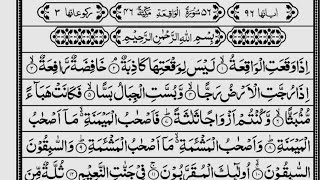 اٰیاتها ٩٢ ٥٦ سُوْرَةُ الْوَاقِعَةِ مَكِّيَّةٌ ٤٦ رکوعاتها ٣
بِسْمِ اللّٰهِ الرَّحْمٰنِ الرَّحِيْمِ
اِذَا وَقَعَتِ الْوَاقِعَةُ ۙ﴿١﴾ لَيْسَ لِوَقْعَتِهَا كَاذِبَةٌ ۘ﴿٢﴾ خَافِضَةٌ رَّافِعَةٌ ۙ﴿٣﴾
اِذَا رُجَّتِ الْاَرْضُ رَجًّا ۙ﴿٤﴾ وَّبُسَّتِ الْجِبَالُ بَسًّا ۙ﴿٥﴾ فَكَانَتْ هَبَآءً
مُّنْۢبَثًّا ۙ﴿٦﴾ وَّكُنْتُمْ اَزْوَاجًا ثَلٰثَةً ؕ﴿٧﴾ فَاَصْحٰبُ الْمَيْمَنَةِ ۙ مَاۤ اَصْحٰبُ
الْمَيْمَنَةِ ؕ﴿٨﴾ وَاَصْحٰبُ الْمَشْـَٔمَةِ ۙ مَاۤ اَصْحٰبُ الْمَشْـَٔمَةِ ؕ﴿٩﴾ وَالسّٰبِقُوْنَ
السّٰبِقُوْنَ ۙ﴿١٠﴾ اُولٰٓئِكَ الْمُقَرَّبُوْنَ ۚ﴿١١﴾ فِيْ جَنّٰتِ النَّعِيْمِ ﴿١٢﴾ ثُلَّةٌ مِّنَ